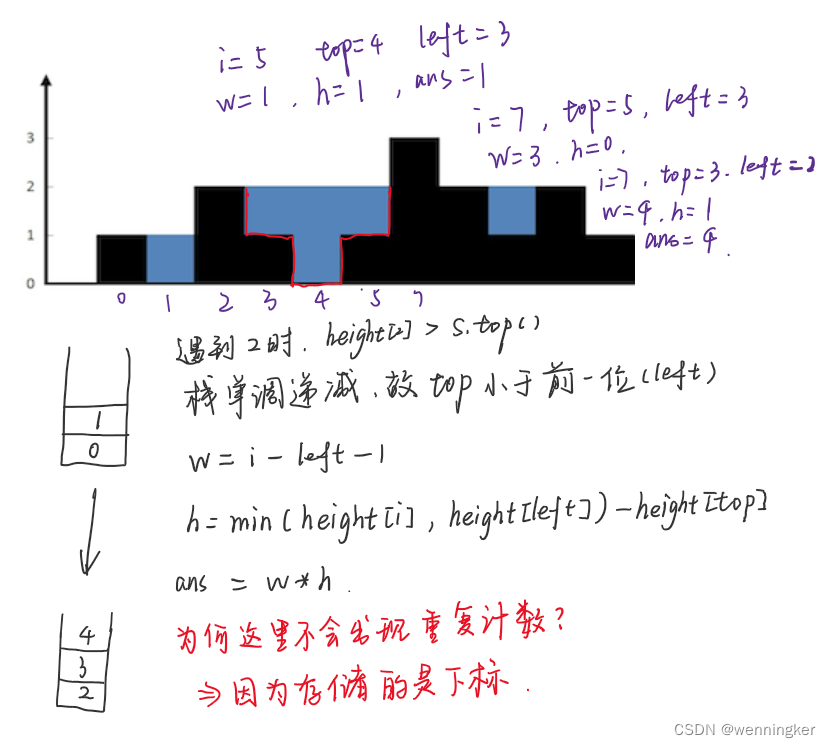 i=5 top=4 left=3
w=1 . h=1 , ans=1
i=7 , top=5 , left=3
w=3 . h=0 .
i=7 , top=3 . left=2
w=4 . h=1
ans=4 .
3
2
1
0
0 1 2 3 4 5 7
遇到2时 . height[2] > s.top()
栈单调递减 . 故 top 小于前一位(left)
1
0
w = i - left - 1
h = min ( height[i] , height[left] ) - height[top]
ans = w * h .
为何这里不会出现重复计数?
⇒ 因为存储的是下标 .
4
3
2
CSDN @wenningker